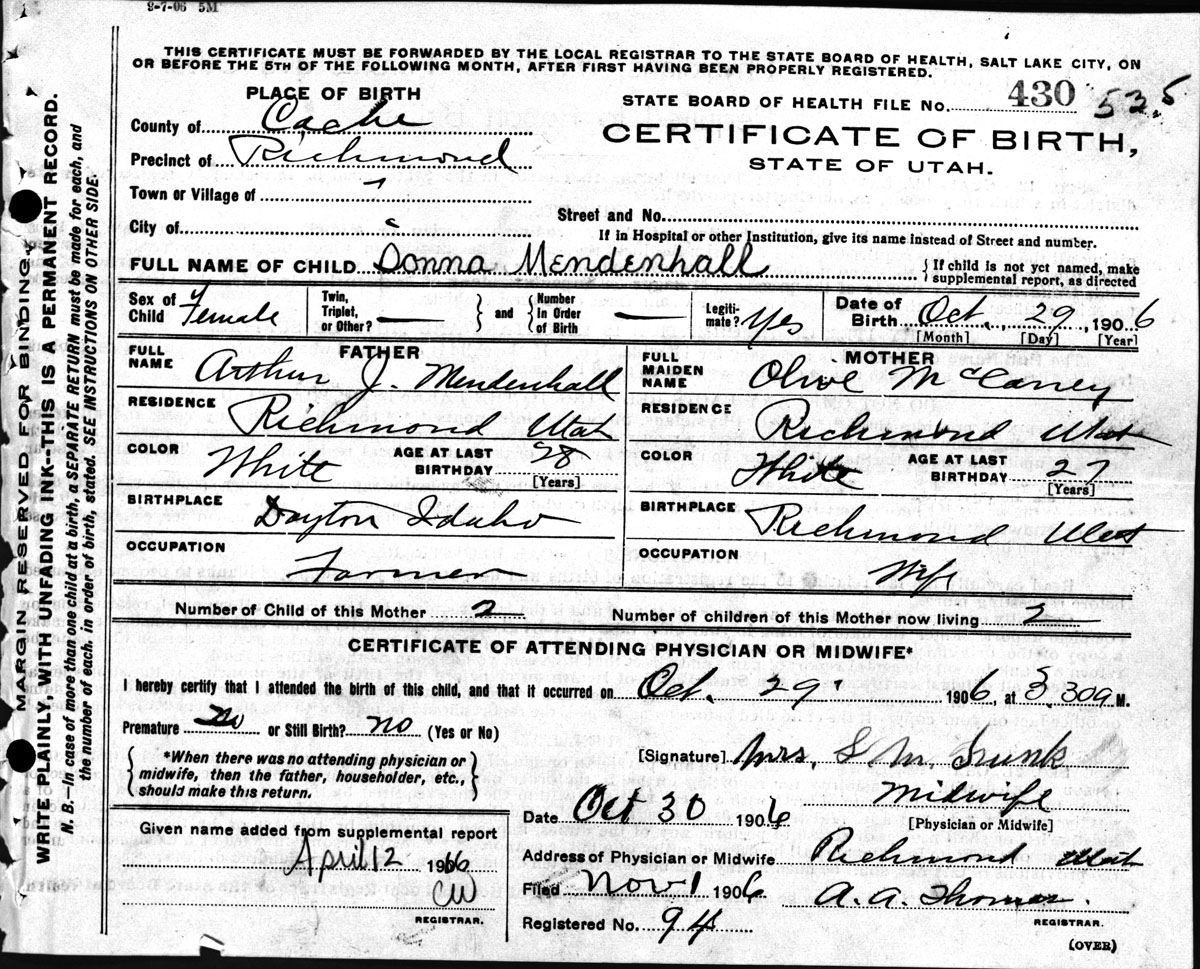 8-7-06 5M
THIS CERTIFICATE MUST BE FORWARDED BY THE LOCAL REGISTRAR TO THE STATE BOARD OF HEALTH, SALT LAKE CITY, ON
OR BEFORE THE 5TH OF THE FOLLOWING MONTH, AFTER FIRST HAVING BEEN PROPERLY REGISTERED.
PLACE OF BIRTH
STATE BOARD OF HEALTH FILE No. 430 52.5
County of Cache
CERTIFICATE OF BIRTH,
Precinct of Richmond
STATE OF UTAH.
Town or Village of
Street and No.
City of
If in Hospital or other Institution, give its name instead of Street and number.
FULL NAME OF CHILD Donna Mendenhall { If child is not yet named, make supplemental report, as directed
Sex of Child Female Twin, Triplet, or Other? — } and { Number in Order of Birth — Legitimate? Yes Date of Birth Oct. 29, 1906
[Month] [Day] [Year]
FATHER
FULL NAME Arthur J. Mendenhall
RESIDENCE Richmond Utah
COLOR White AGE AT LAST BIRTHDAY 28
[Years]
BIRTHPLACE Dayton Idaho
OCCUPATION Farmer
MOTHER
FULL MAIDEN NAME Olive McCarrey
RESIDENCE Richmond Utah
COLOR White AGE AT LAST BIRTHDAY 27
[Years]
BIRTHPLACE Richmond Utah
OCCUPATION Wife
Number of Child of this Mother 2 Number of children of this Mother now living 2
CERTIFICATE OF ATTENDING PHYSICIAN OR MIDWIFE*
I hereby certify that I attended the birth of this child, and that it occurred on Oct. 29, 1906, at 3 30a M.
Premature No or Still Birth? no (Yes or No)
*When there was no attending physician or
midwife, then the father, householder, etc.,
should make this return.
[Signature] Mrs. S M
Midwife
Date Oct 30 1906 [Physician or Midwife]
Given name added from supplemental report
April 12 1916
CW
REGISTRAR.
Address of Physician or Midwife Richmond Utah
Filed Nov 1 1906 A. A. Thomas.
Registered No. 94 REGISTRAR.
(OVER)
MARGIN RESERVED FOR BINDING.
WRITE PLAINLY, WITH UNFADING INK--THIS IS A PERMANENT RECORD.
N. B.—In case of more than one child at a birth, a SEPARATE RETURN must be made for each, and
the number of each, in order of birth, stated. SEE INSTRUCTIONS ON OTHER SIDE.